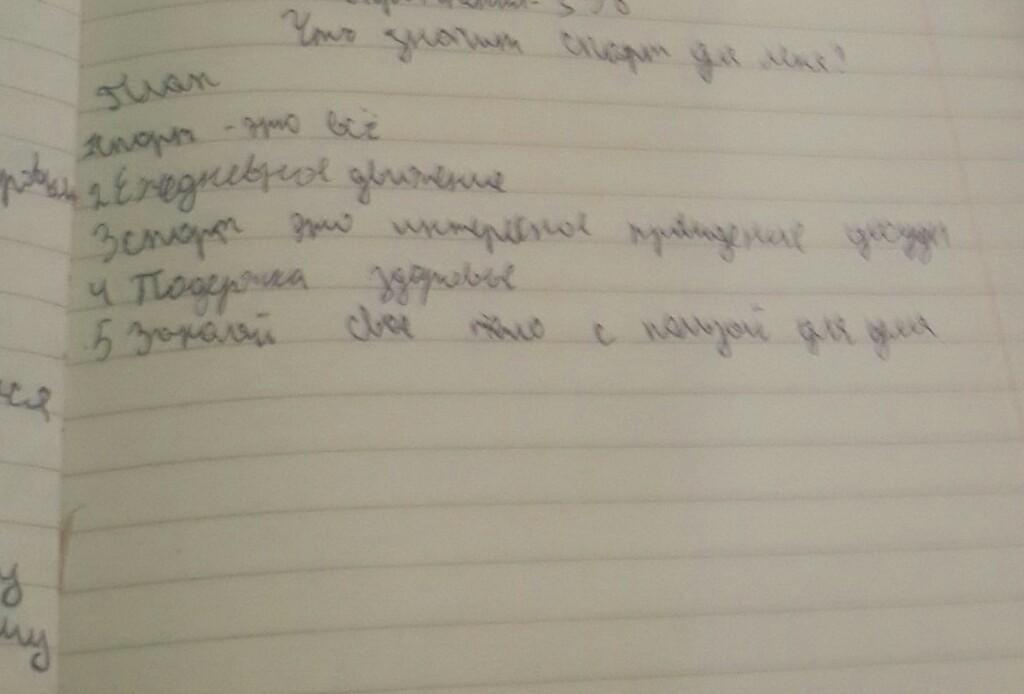 Что значит спорт для меня?
План
1 спорт - это всё
2 Ежедневное движение
3 спорт это интересное проведение досуга
4 Подержка здоровье
5 Закаляй свое тело с пользой для
ся
у
му